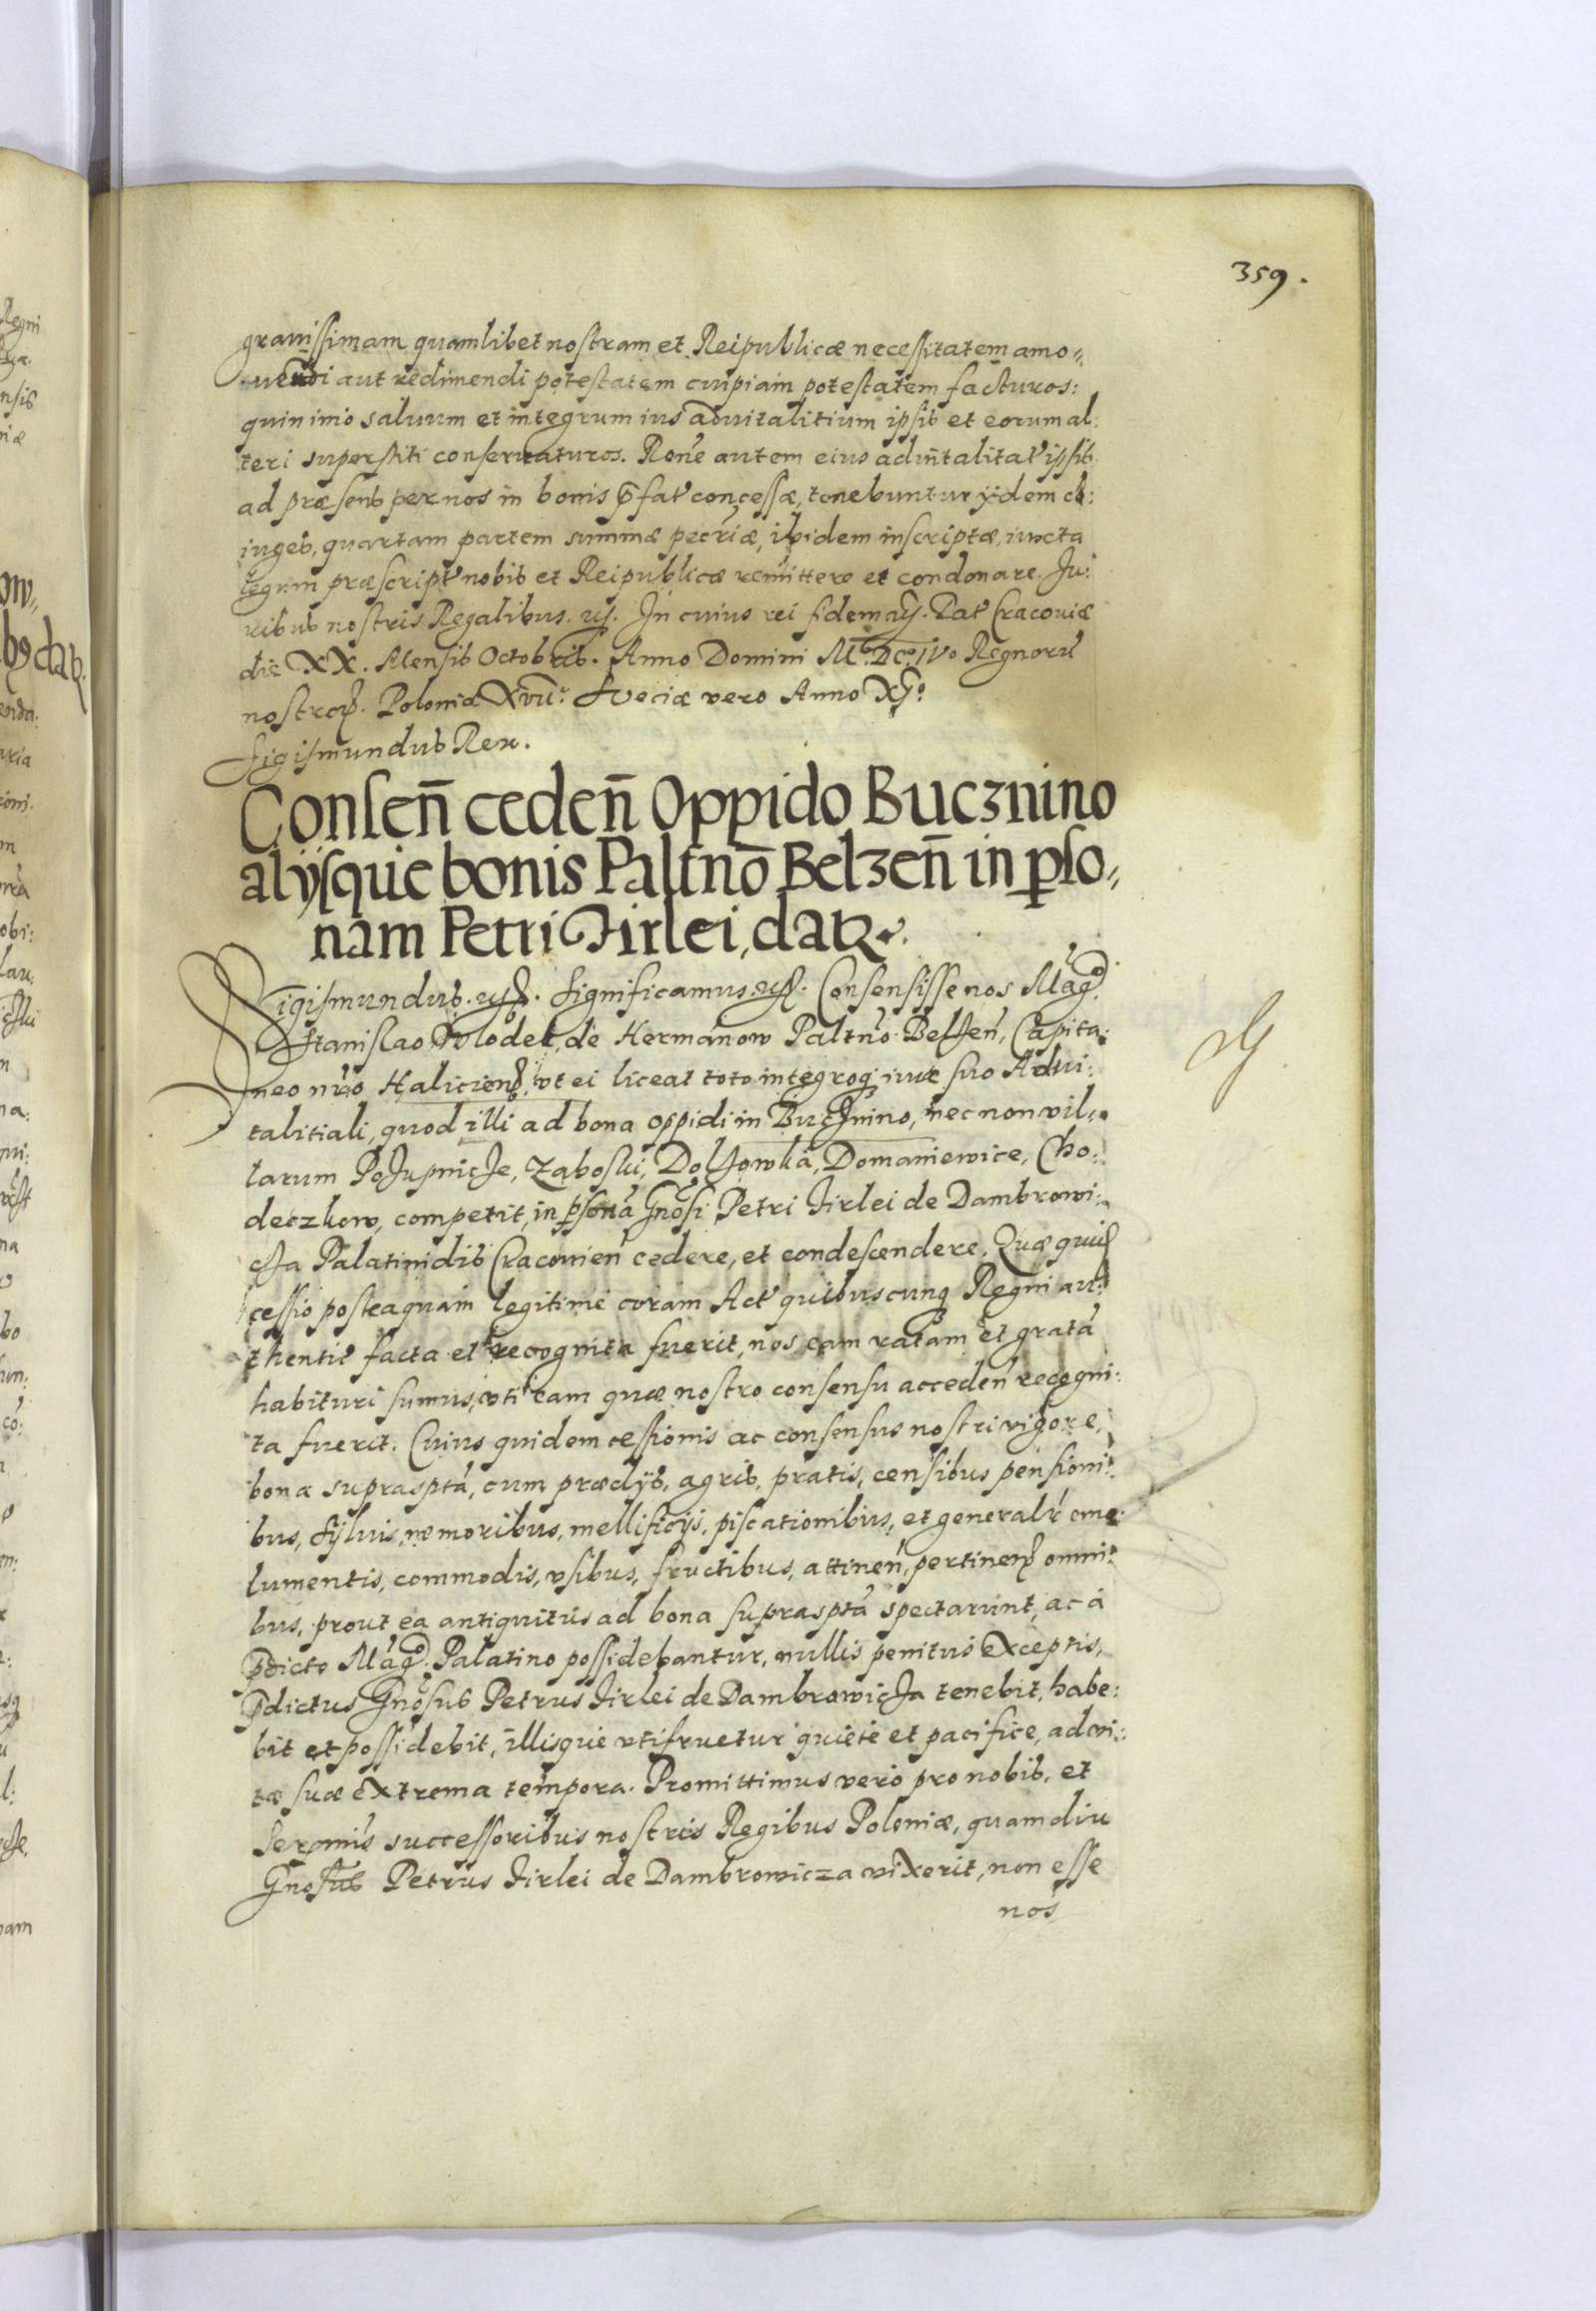 359.
grauissimam quamlibet nostram et Reipublicæ necessitatem amo„
uendi aut redimendi potestatem cuipiam potestatem facturos:
quin imò saluum et integrum ius aduitalitium ipsis et eorum al:
teri superstiti conseruaturos. Rone autem eius aduitalitat ipsis
ad præsens per nos in bonis p̄fat concessæ, tenebuntur ijdem cō:
iuges, quartam partem summæ pecriæ, ibidem inscriptæ, iuxta
legum præscript nobis et Reipublicæ remittere et condonare. Ju:
ribus nostris Regalibus. etc. In cuius rei fidem etc. Dat Cracouiæ
die XX. Mensis Octobris. Anno Domini Mo. DCo. IVo Regnorū
nostrorum. Poloniæ XVII. Sveciæ vero Anno XIo.
Sigismundus Rex.
Consen̄ ceden̄ Oppido Bucznino
alijsque bonis Paltnō Belzen̄ in p̱so„
nam Petri Firlei, datƷ.
Sigismundus. etc. Significamus. etc. Consensisse nos Magco.
Stanislao Wlodek, de Hermanow Paltno Belzen, Capita:
neo nro Halicien, vt ei liceat toto integroq iure suo Adui:
talitiali, quod illi ad bona oppidi in Bucznino, nec non vil:
larum Pozupnicze, Zaboski, Dolzowka, Domaniewice, Cho:
deczkow, competit, in p̱sonā Gnosi Petri Firlei de Dambrowi:
cza Palatinidis Cracouien cedere, et condescendere. Quæ quid
cessio posteaquam legitimè coram Act quibuscunq Regni au:
thentit facta et recognita fuerit, nos eam ratam et gratā
habituri sumus, vti eam quæ nostro consensu acceden recogni:
ta fuerit. Cuius quidem cessionis ac consensus nostri vigore,
bona suprasptā, cum prædijs, agris, pratis, censibus pensioni:
bus, syluis, nemoribus, mellificijs, piscationibus, et generalr emo:
lumentis, commodis, vsibus, fructibus, attinen, pertinen omni:
bus, prout ea antiquitùs ad bona suprasptā spectarunt, ac à
p̄dicto Magco. Palatino possidebantur, nullis penitus exceptis,
p̄dictus Gnosus Petrus Firlei de Dambrowicza tenebit, habe:
bit et possidebit, illisque vtifruetur quietè et pacificè, ad vi:
tæ suæ extrema tempora. Promittimus verò pro nobis, et
Sermis successoribus nostris Regibus Poloniæ, quamdiu
Gnosus Petrus Firlei de Dambrowicza vixerit, non esse
nos